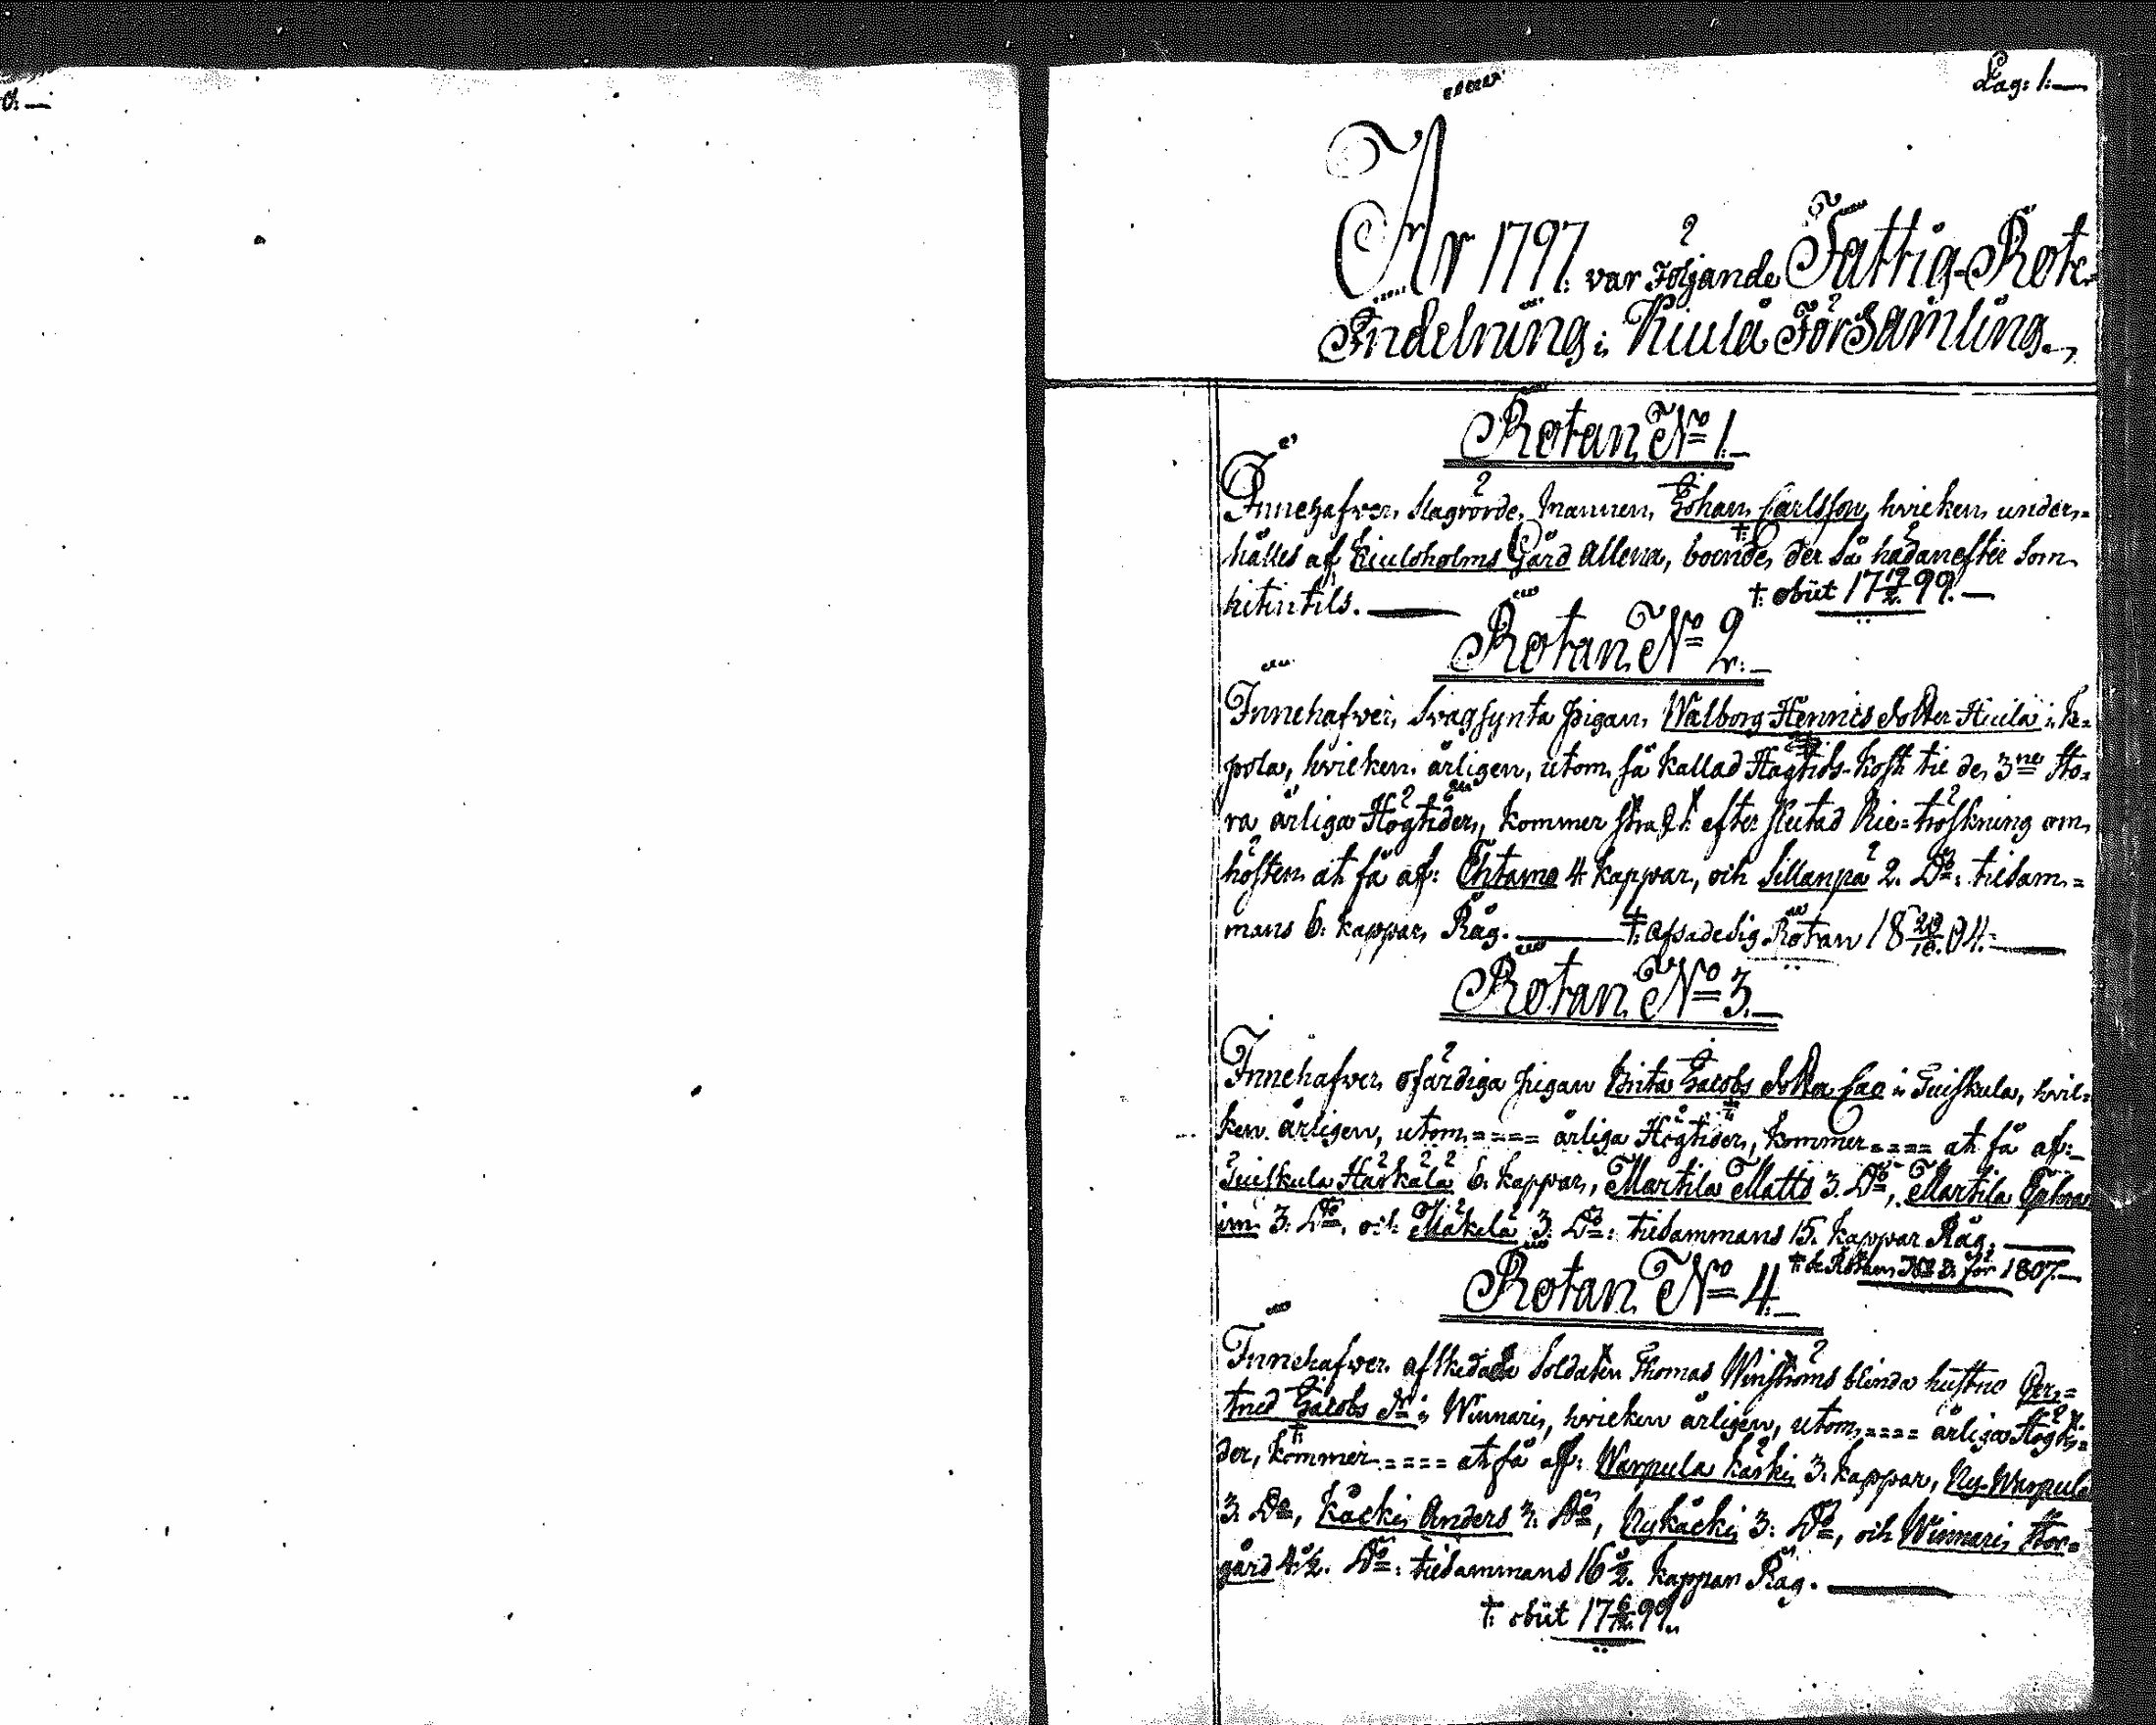 Pag: 1:—
År 1797. var följande Fattig-Rote-
Indelning i Kiula Församling.
Rotan N:o 1.
Innehafwer, slagrörde, Mannen, Johan Carlsson, hvilken under-
hålles af Kiuloholms Gård allena, boende, der så hädanefter som
hitintils. †: obiit 17 19/2. 99.
Rotan N:o 2.
Innehafwer, svagsynta pigan, Walborg Henrics dotter Hiula i Ke-
pola, hvilken årligen, utom så kallad Högtids-kost til de 3ne sto-
ra årliga Högtider, kommer strax efter slutad Rie-tröskning om
hösten at få af: Ehtamo 4 kappar, och Sillanpä 2. D:o: tilsam-
mans 6. kappar Råg. †: afsade sig Rotan 18 20/10. 04.
Rotan N:o 3.
Innehafwer ofärdiga pigan Brita Jacobs dotter Cao i Tuiskula, hvil-
ken årligen, utom ==== årliga Högtider, kommer ==== at få af:
Tuiskula Härkälä 6. kappar, Martila Matts 3. D:o, Martila Ephra
im 3. D:o, och Mäkelä 3. D:o: tilsammans 15. kappar Råg.
för 1807.
Rotan N:o 4.
Innehafwer afskedade Soldaten Thomas Winströms blinda hustro Ger-
trud Jacobs D:r i Winnari, hvilken årligen, utom ==== årliga Högti-
der, kommer ==== at få af: Warpula Käski 3. kappar, Ny-Warpula
3. D:o, Käcki Anders 3. D:o, Nykäcki 3. D:o, och Winnari Stor-
gård 4 1/2. D:o: tilsammans 16 1/2. kappar Råg.
†: obiit 99.